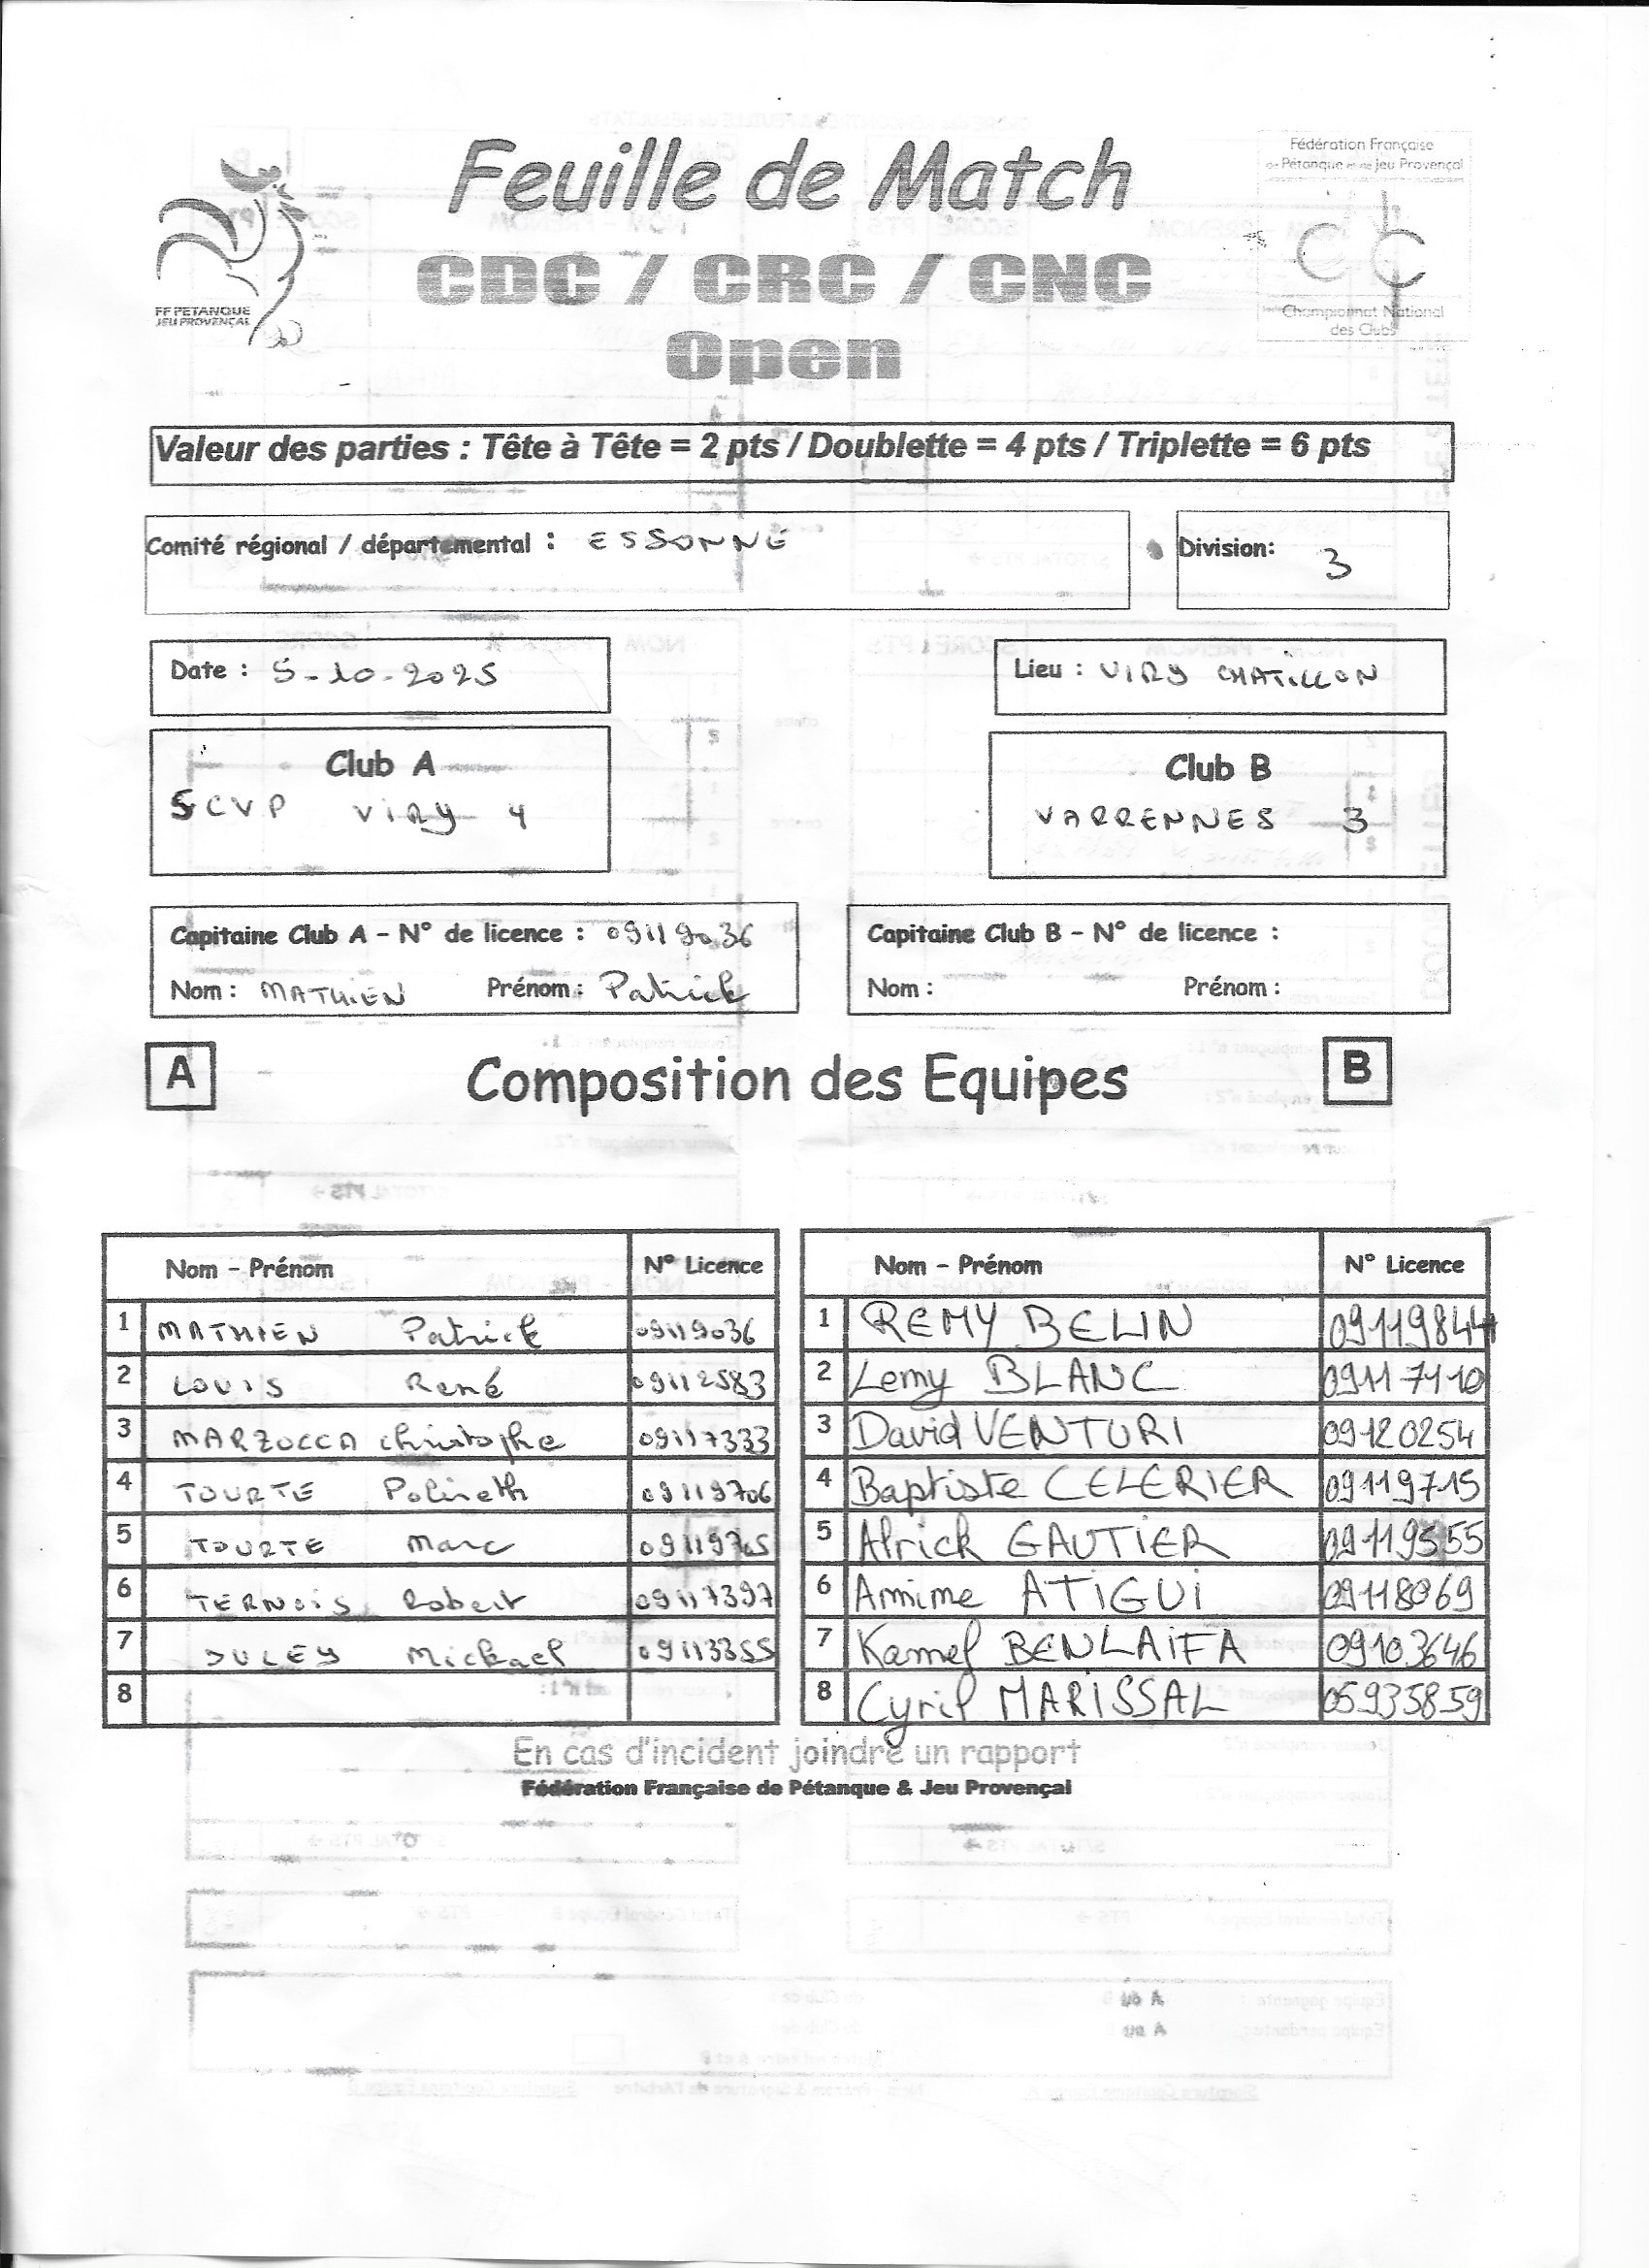 Feuille de Match
Fédération Française
de Pétanque et de Jeu Provençal
CDC / CRC / CNC
Open
FF PETANQUE
JEU PROVENÇAL
Championnat National
des Clubs
Valeur des parties : Tête à Tête = 2 pts / Doublette = 4 pts / Triplette = 6 pts
Comité régional / départemental : ESSONNE
Division: 3
Date : 5-10-2025
Lieu : VIRY CHATILLON
Club A
SCVP VIRY 4
Club B
VARRENNES 3
Capitaine Club A - N° de licence : 09119036
Nom : MATHIEN Prénom : Patrick
Capitaine Club B - N° de licence :
Nom : Prénom :
A Composition des Equipes B
Nom - Prénom N° Licence Nom - Prénom N° Licence
1 MATHIEN Patrick 09119036 1 REMY BELIN 09119844
2 LOUIS René 09112583 2 Lemy BLANC 09117110
3 MARZOCCA christophe 09117333 3 David VENTURI 09120254
4 TOURTE 09119706 4 Baptiste CELERIER 09119715
5 TOURTE Marc 09119705 5 Alrick GAUTIER 09119555
6 TERNOIS Robert 09117397 6 Amime ATIGUI 09118069
7 JULEY Mickael 09113355 7 Kamel BENLAIFA 09103646
8 8 Cyril MARISSAL 05935859
En cas d'incident joindre un rapport
Fédération Française de Pétanque & Jeu Provençal